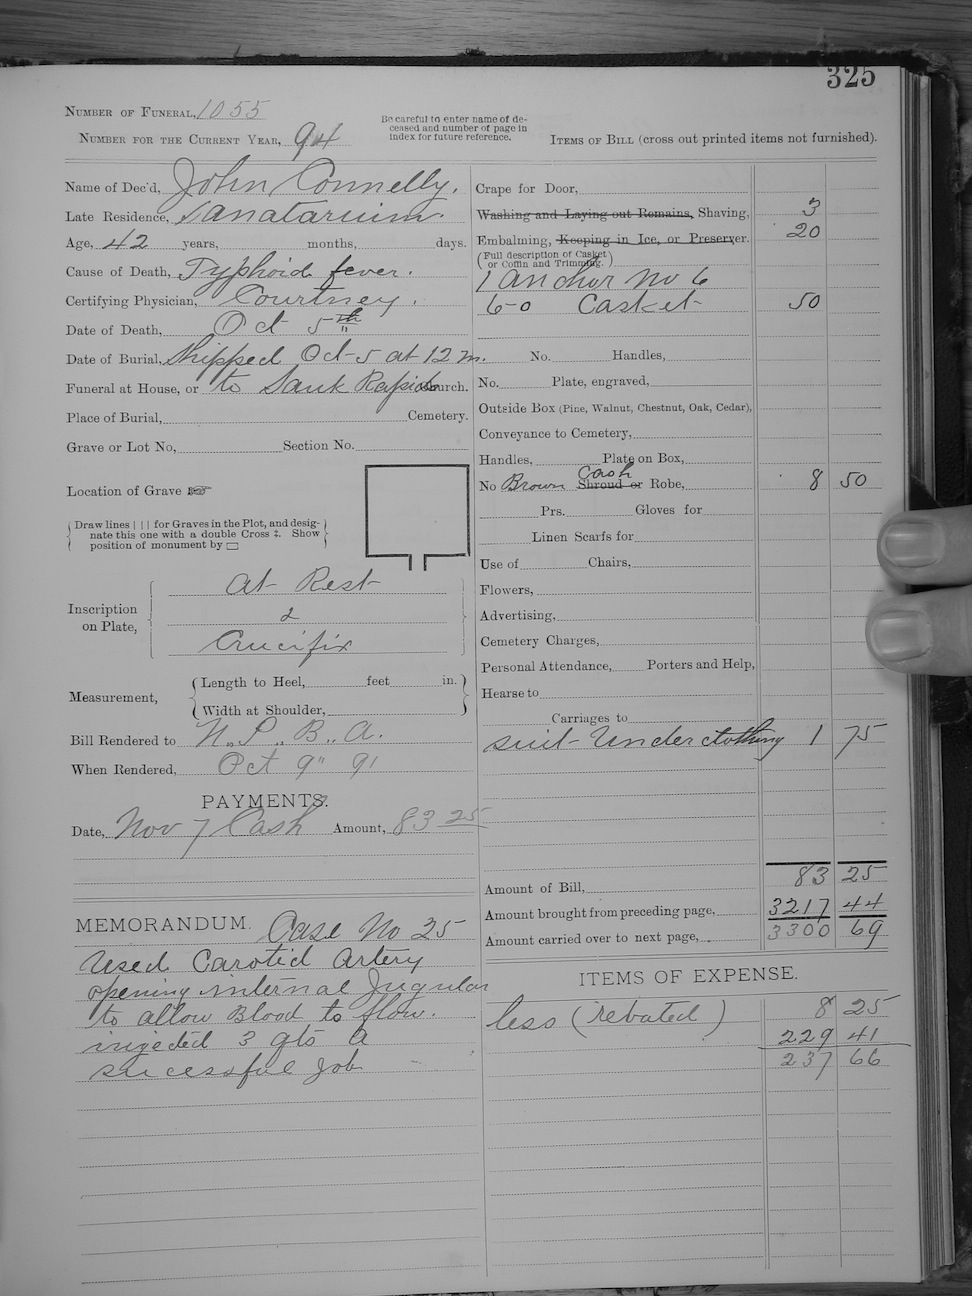 325
NUMBER OF FUNERAL, 1055
NUMBER FOR THE CURRENT YEAR, 94
Be careful to enter name of de-
ceased and number of page in
index for future reference.
ITEMS OF BILL (cross out printed items not furnished).
Name of Dec'd, John Connelly.
Late Residence, Sanatarium.
Age, 42 years, months, days.
Cause of Death, Typhoid fever.
Certifying Physician, Courtney.
Date of Death, Oct 5th
Date of Burial, Shipped Oct 5 at 12 m.
Funeral at House, or to Sauk Rapids Church.
Place of Burial, Cemetery.
Grave or Lot No, Section No.
Location of Grave ☞
Draw lines | | | for Graves in the Plot, and desig-
nate this one with a double Cross ‡. Show
position of monument by ▭
Inscription
on Plate,
At Rest
&
Crucifix
Measurement,
Length to Heel, feet in.
Width at Shoulder,
Bill Rendered to N.. P.. B.. A.
When Rendered, Oct 9" 91
PAYMENTS.
Date, Nov 7 Cash Amount, 83 25
MEMORANDUM. Case No 25
Used Carotid Artery
opening internal Jugular
to allow Blood to flow.
injected 3 qts A
successful Job
Crape for Door,
Washing and Laying out Remains, Shaving, 3
Embalming, Keeping in Ice, or Preserver. 20
(Full description of Casket
or Coffin and Trimming.)
1 anchor No 6
6-0 Casket 50
No. Handles,
No. Plate, engraved,
Outside Box (Pine, Walnut, Chestnut, Oak, Cedar),
Conveyance to Cemetery,
Handles, Plate on Box,
Cash
No Brown Shroud or Robe, 8 50
Prs. Gloves for
Linen Scarfs for
Use of Chairs,
Flowers,
Advertising,
Cemetery Charges,
Personal Attendance, Porters and Help,
Hearse to
Carriages to
suit Underclothing 1 75
Amount of Bill, 83 25
Amount brought from preceding page, 3217 44
Amount carried over to next page, 3300 69
ITEMS OF EXPENSE.
less (rebated) 8 25
229 41
237 66